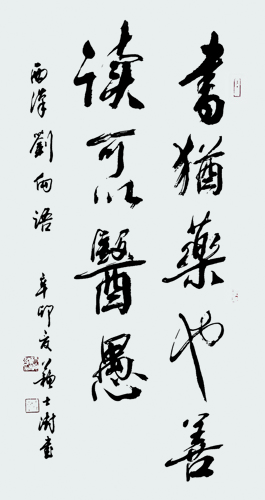 書猶藥也善
读可以醫愚
西漢劉向语
辛卯夏蘇士澍書